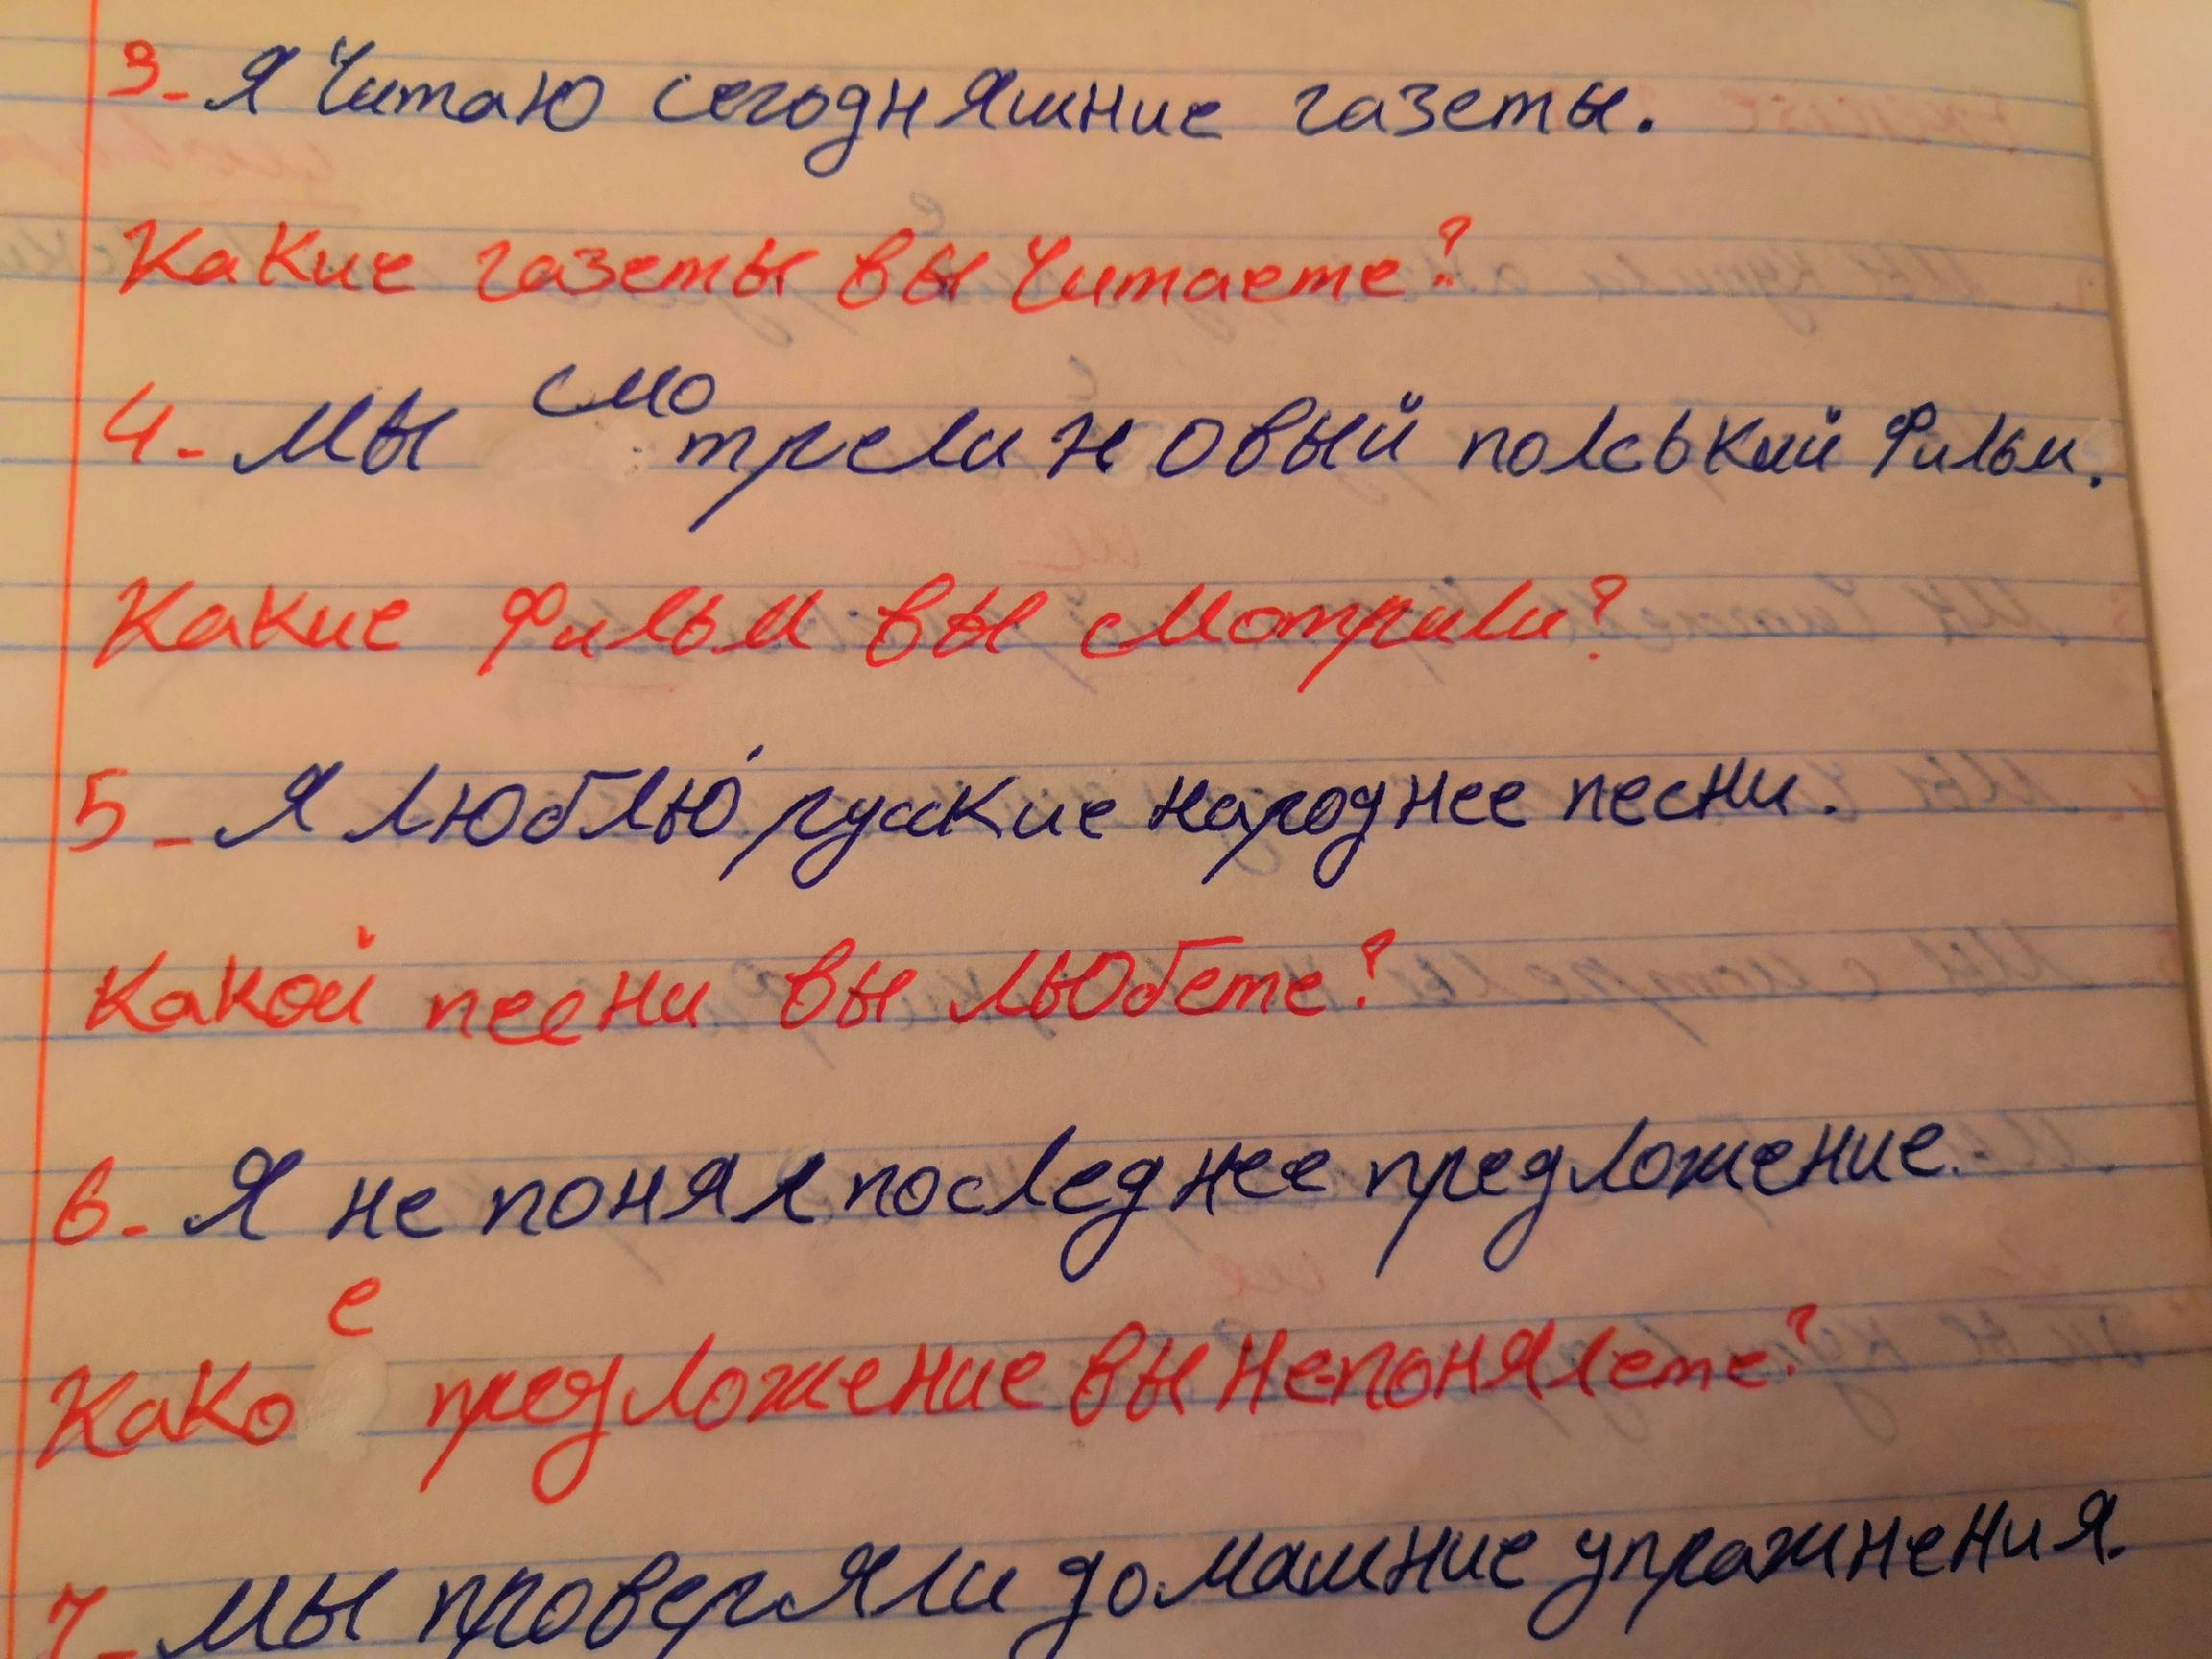 3- Я Читаю сегодняшние газеты.
Какие газеты вы Читаете?
4- Мы смотрели новый полський Фильм.
Какие Фильм вы смотрили?
5- Я люблю́ русские народнее песни.
Какой песни вы льюбете?
6- Я не понял последнее предложение.
Какое предложение вы не-понялете?
7- Мы проверяли домашние упражнения.